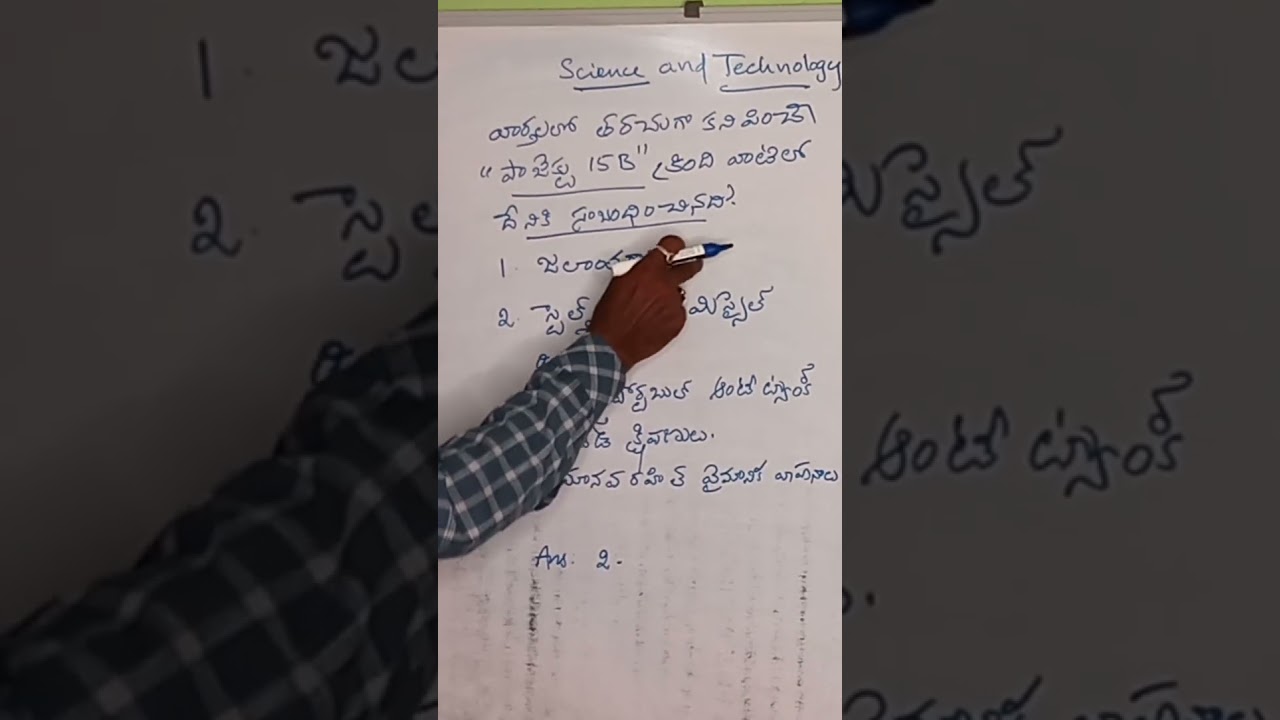 Science and Technology
వార్తలలో తరచుగా కనిపించే
"ప్రాజెక్టు 15B" క్రింది వాటిలో
దేనికి సంబంధించినది?
1.
2. స్టెల్త్ మిస్సైల్
పోర్టబుల్ ఆంటీ ట్యాంక్
క్షిపణులు.
మానవ రహిత వైమానిక వాహనాలు
Ans. 2.